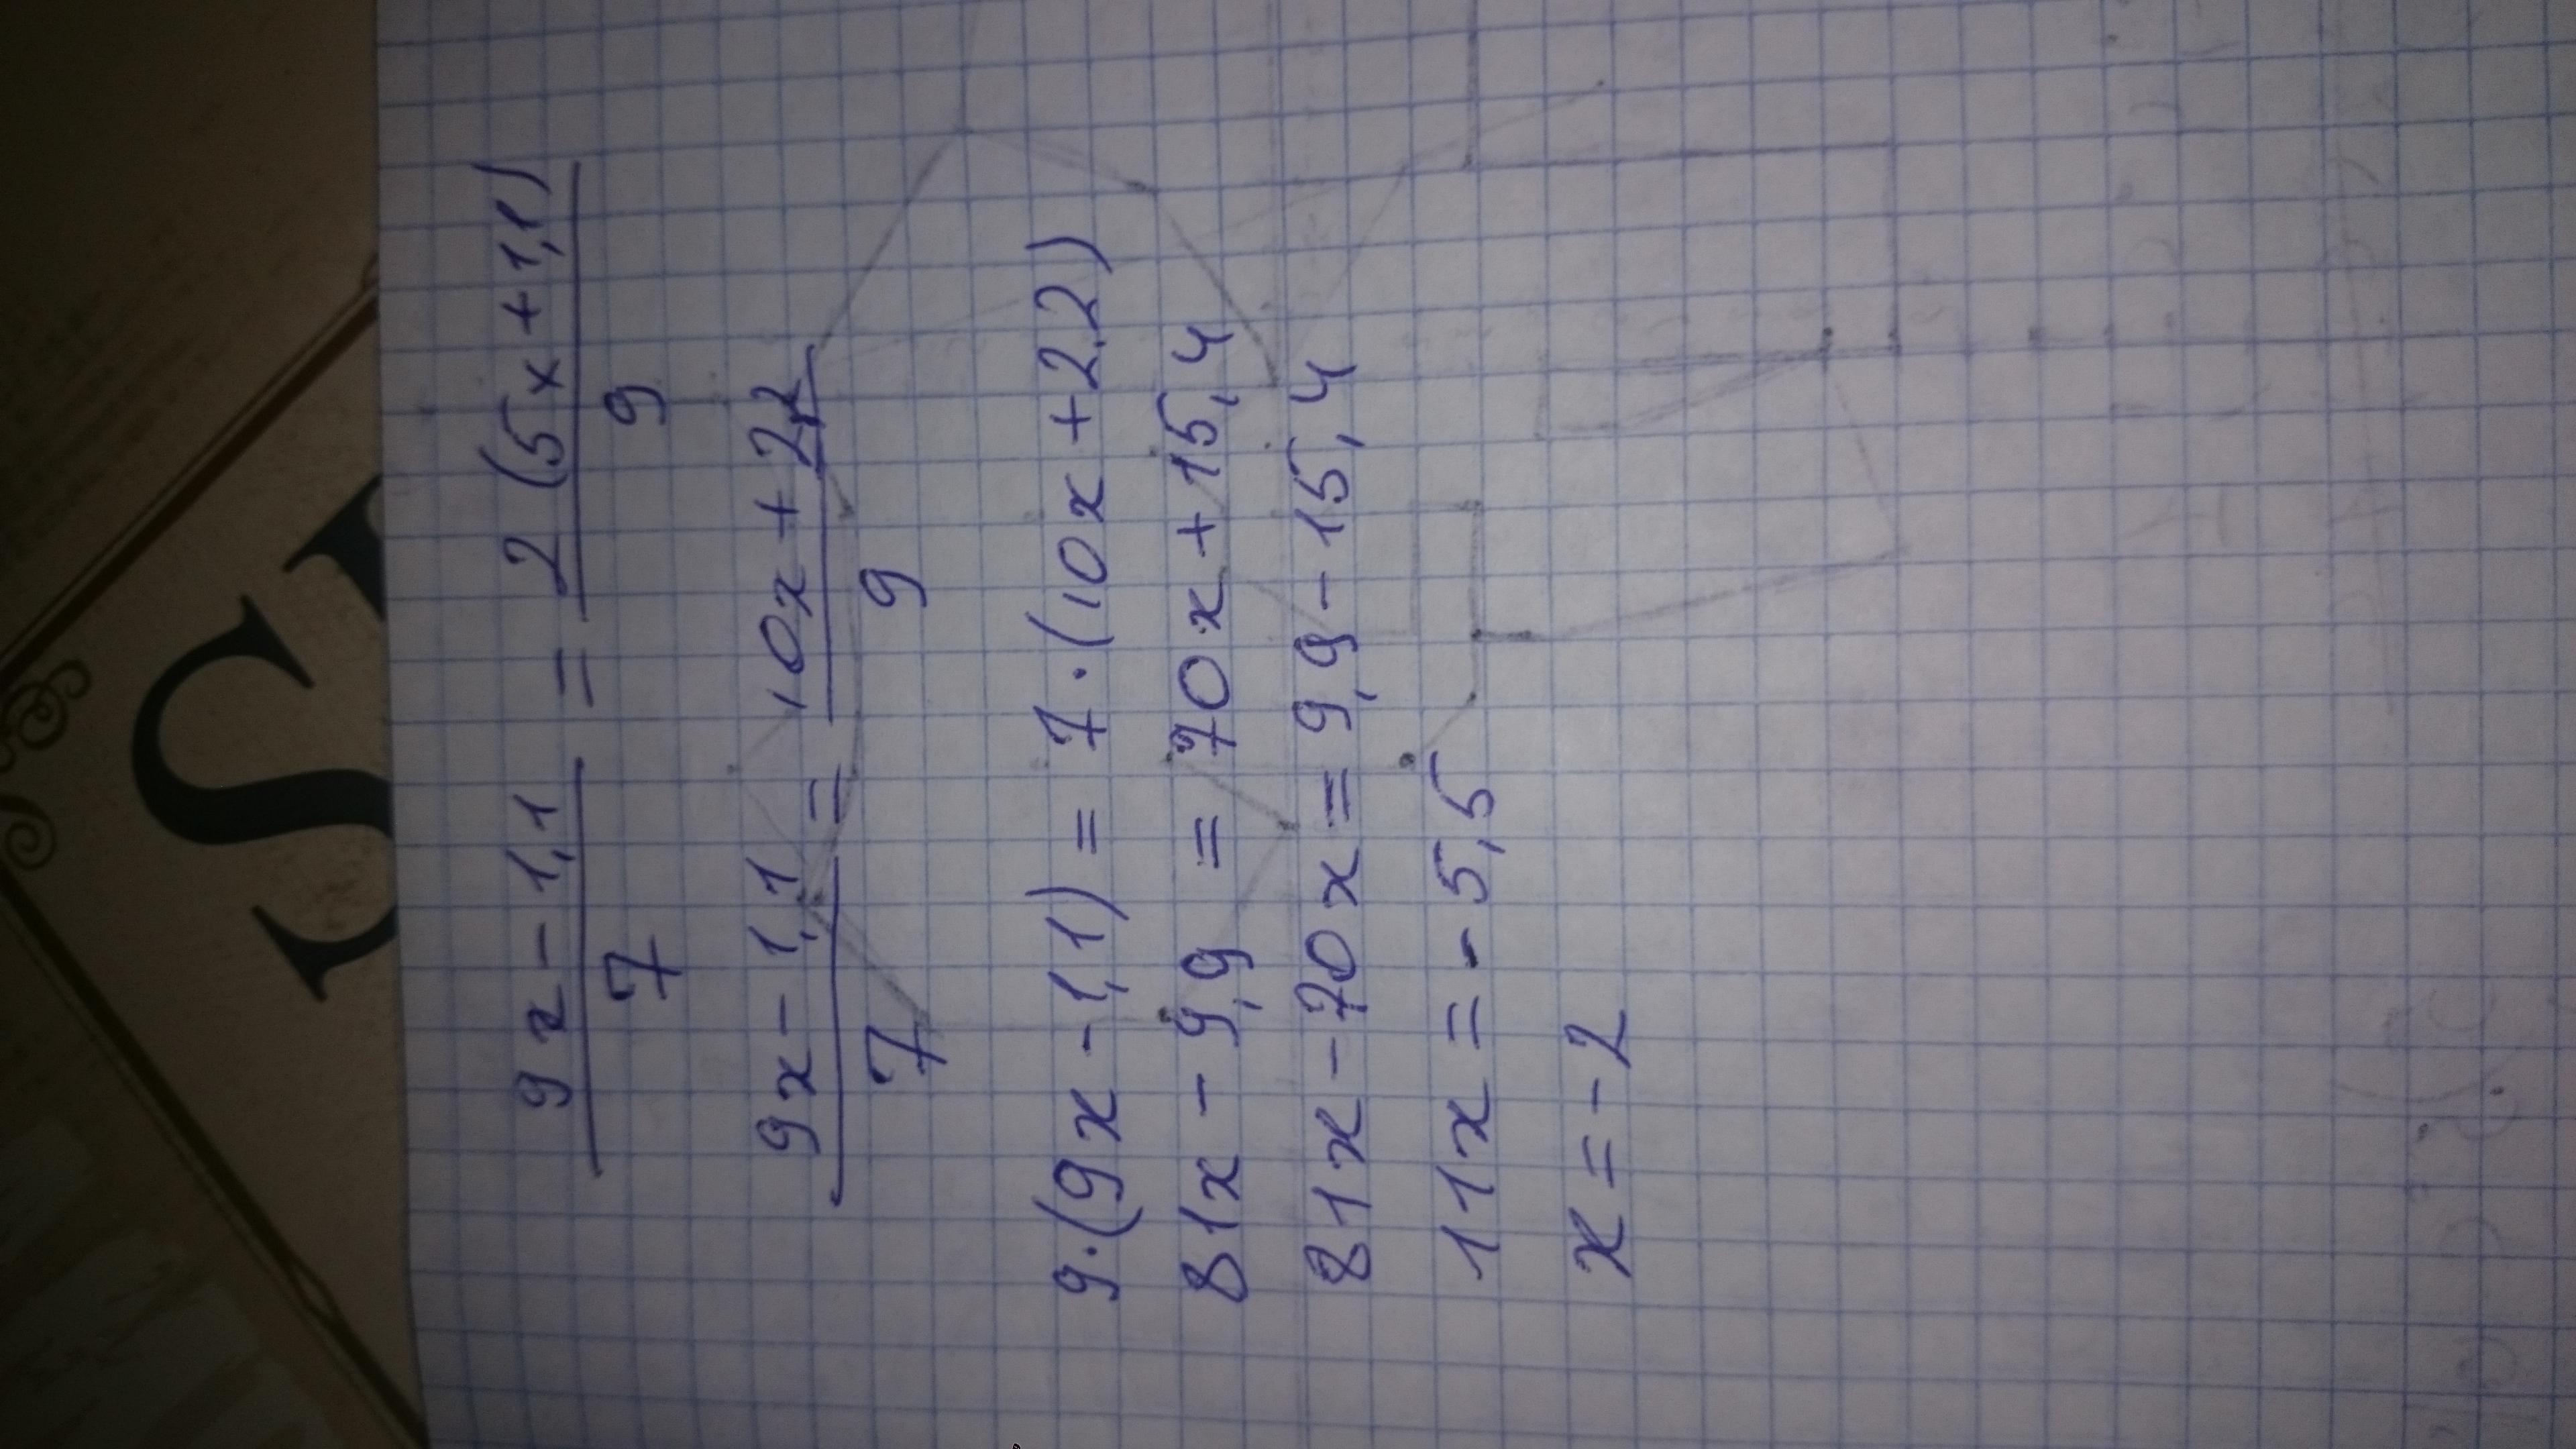 9x - 1,1 / 7 = 2 (5x + 1,1) / 9
9x - 1,1 / 7 = 10x + 2,2 / 9
9·(9x - 1,1) = 7·(10x + 2,2)
81x - 9,9 = 70x + 15,4
81x - 70x = 9,9 - 15,4
11x = - 5,5
x = - 2
S